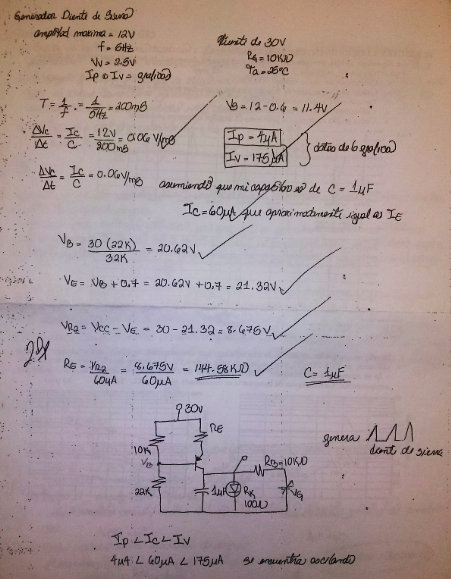 Generador Diente de Sierra
amplitud maxima = 12V
f = 5Hz
Vv = 2.5V
Ip e Iv = graficas
Fuente de 30V
RG = 10KΩ
Ta = 25°C
T = 1/f = 1/5Hz = 200mS
VG = 12 - 0.6 = 11.4V
ΔVc/Δt = Ic/C = 12V/200mS = 0.06 V/mS
Ip = 4μA
Iv = 175μA
datos de la grafica
ΔVc/Δt = Ic/C = 0.06V/mS asumiendo que mi capacitor es de C = 1μF
Ic = 60μA que aproximadamente igual es IE
VB = 30 (22K)/32K = 20.62V
VE = VB + 0.7 = 20.62V + 0.7 = 21.32V
VRE = VCC - VE = 30 - 21.32 = 8.675V
RE = VRE/60μA = 8.675V/60μA = 144.58KΩ
C = 1μF
30V
RE
10K
VB
22K
1μF
RK
100Ω
RG=10KΩ
VG
genera
diente de sierra
Ip < Ic < Iv
4μA < 60μA < 175μA se encuentra oscilando